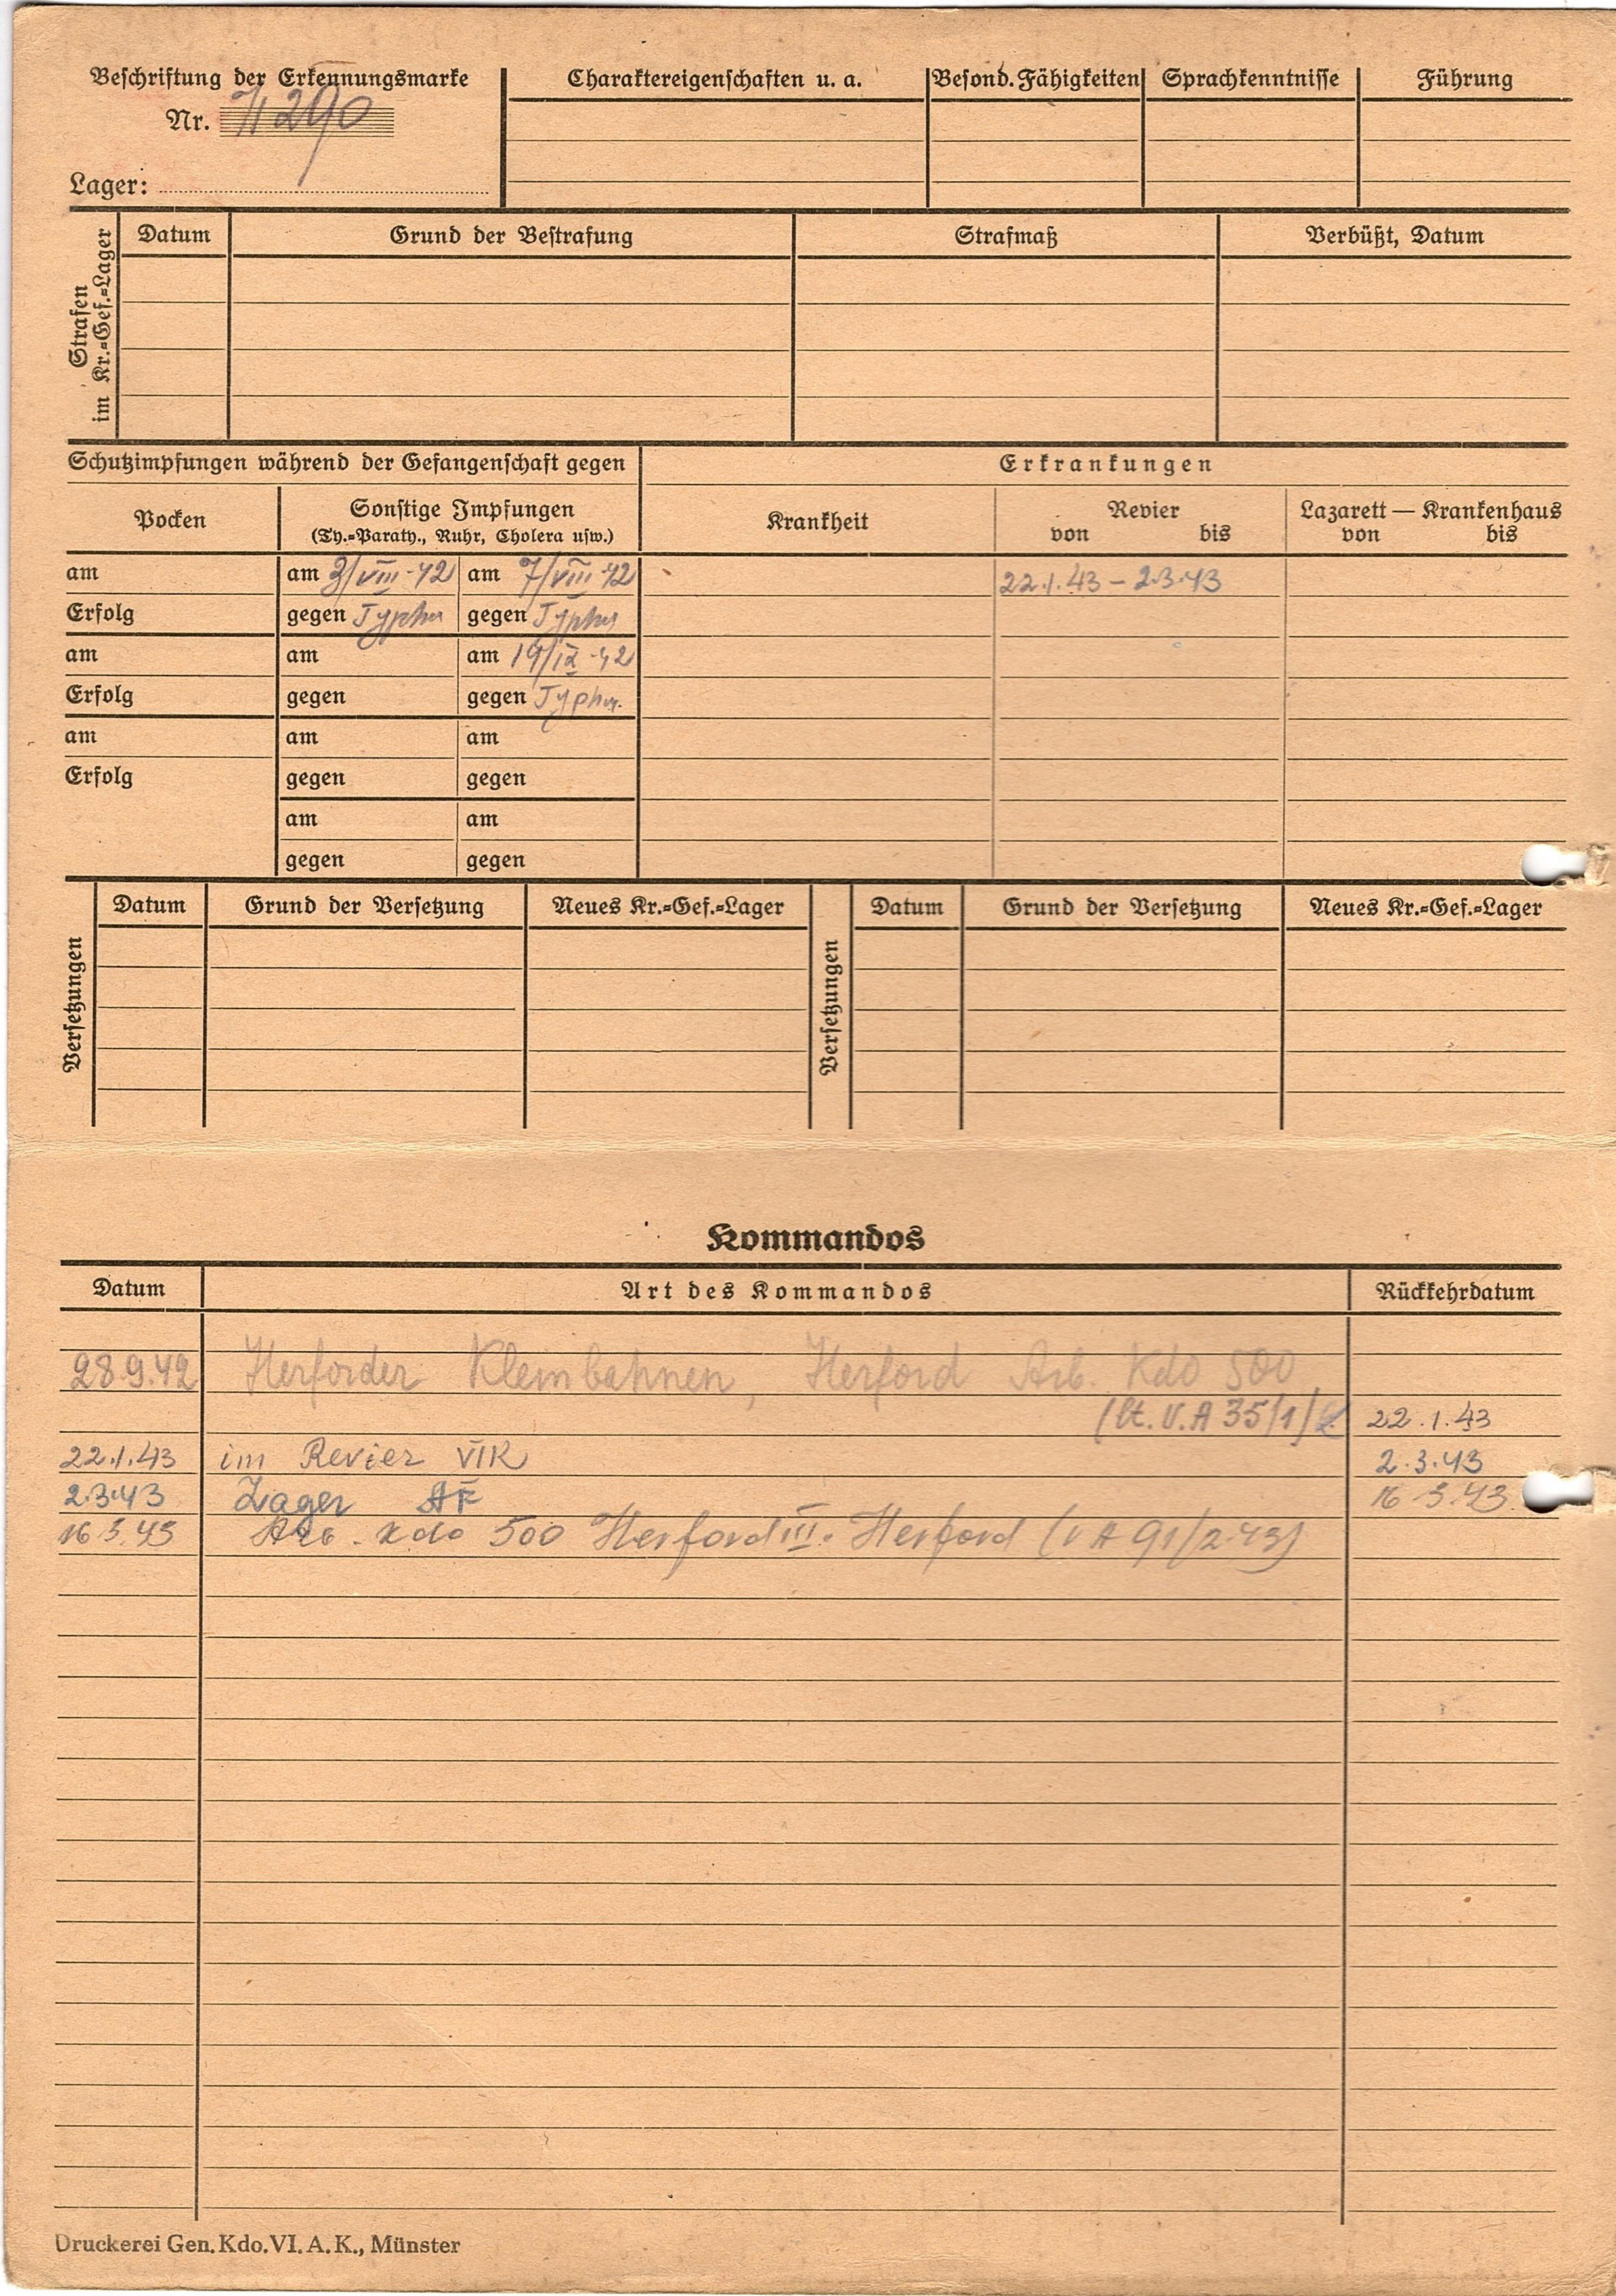 Beschriftung der Erkennungsmarke
Nr. 71290
Lager:
Charaktereigenschaften u. a.
Besond. Fähigkeiten
Sprachkenntnisse
Führung
Strafen
im Kr.=Gef.=Lager
Datum
Grund der Bestrafung
Strafmaß
Verbüßt, Datum
Schutzimpfungen während der Gefangenschaft gegen
Erkrankungen
Pocken
Sonstige Impfungen
(Ty.=Paraty., Ruhr, Cholera usw.)
Krankheit
Revier
von bis
Lazarett — Krankenhaus
von bis
am am 3/VIII·42 am 7/VIII·42 22.1.43 – 2.3.43
Erfolg gegen Typhus gegen Typhus
am am am 19/IX·42
Erfolg gegen gegen Typhus
am am am
Erfolg gegen gegen
am am
gegen gegen
Versetzungen
Datum
Grund der Versetzung
Neues Kr.=Gef.=Lager
Versetzungen
Datum
Grund der Versetzung
Neues Kr.=Gef.=Lager
Kommandos
Datum Art des Kommandos Rückkehrdatum
28.9.42 Herforder Kleinbahnen, Herford Arb. Kdo 500
(lt. V.A 35/1/ 22.1.43
22.1.43 im Revier VIK 2.3.43
2.3.43 Lager 16 3.43
16 3.43 Arb. Kdo 500 Herford III. Herford (V A 91/2.43)
Druckerei Gen. Kdo. VI. A. K., Münster